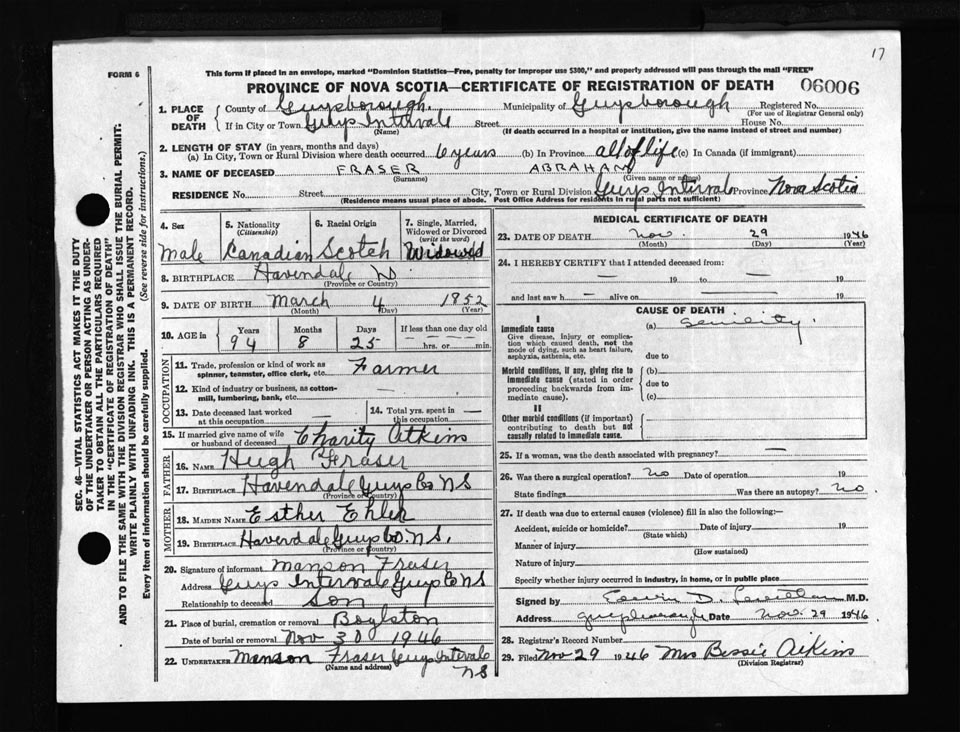 17
FORM 6
This form if placed in an envelope, marked "Dominion Statistics—Free, penalty for improper use $300," and property addressed will pass through the mail "FREE"
PROVINCE OF NOVA SCOTIA—CERTIFICATE OF REGISTRATION OF DEATH 06006
SEC. 46—VITAL STATISTICS ACT MAKES IT THE DUTY
OF THE UNDERTAKER OR PERSON ACTING AS UNDER-
TAKER TO OBTAIN ALL THE PARTICULARS REQUIRED
IN THE "CERTIFICATE OF REGISTRATION OF DEATH"
AND TO FILE THE SAME WITH THE DIVISION REGISTRAR WHO SHALL ISSUE THE BURIAL PERMIT.
WRITE PLAINLY WITH UNFADING INK. THIS IS A PERMANENT RECORD.
Every item of information should be carefully supplied. (See reverse side for instructions.)
1. PLACE OF DEATH
County of Guysborough. Municipality of Guysborough Registered No.
(For use of Registrar General only)
If in City or Town Guys Intervale Street House No.
(Name) (If death occurred in a hospital or institution, give the name instead of street and number)
2. LENGTH OF STAY (in years, months and days)
(a) In City, Town or Rural Division where death occurred 6 years (b) In Province all of life (c) In Canada (if immigrant)
3. NAME OF DECEASED FRASER ABRAHAM
(Surname) (Given name or names)
RESIDENCE No. Street City, Town or Rural Division Guys Intervale Province Nova Scotia
(Residence means usual place of abode. Post Office Address for residents in rural parts not sufficient)
4. Sex
Male
5. Nationality
(Citizenship)
Canadian
6. Racial Origin
Scotch
7. Single, Married,
Widowed or Divorced
(write the word)
Widowed
8. BIRTHPLACE Havendale
(Province or Country)
9. DATE OF BIRTH March 4 1852
(Month) (Day) (Year)
10. AGE in
Years Months Days If less than one day old
94 8 25 hrs. or min.
OCCUPATION
11. Trade, profession or kind of work as
spinner, teamster, office clerk, etc. Farmer
12. Kind of industry or business, as cotton-
mill, lumbering, bank, etc. —
13. Date deceased last worked
at this occupation —
14. Total yrs. spent in
this occupation —
15. If married give name of wife
or husband of deceased Charity Atkins
FATHER
16. NAME Hugh Fraser
17. BIRTHPLACE Havendale Guys Co NS
(Province or Country)
MOTHER
18. MAIDEN NAME Esther Ehler
19. BIRTHPLACE Havendale Guys Co. NS.
(Province or Country)
20. Signature of informant Manson Fraser
Address Guys Intervale Guys Co NS
Relationship to deceased Son
21. Place of burial, cremation or removal Boylston
Date of burial or removal Nov 30 1946
22. UNDERTAKER Manson Fraser Guys Intervale
(Name and address) NS
MEDICAL CERTIFICATE OF DEATH
23. DATE OF DEATH Nov. 29 1946
(Month) (Day) (Year)
24. I HEREBY CERTIFY that I attended deceased from:
— 19 to — 19
and last saw h — alive on — 19
CAUSE OF DEATH
I
Immediate cause
Give disease, injury or complica-
tion which caused death, not the
mode of dying, such as heart failure,
asphyxia, asthenia, etc.
(a) Senility.
due to
Morbid conditions, if any, giving rise to
immediate cause (stated in order
proceeding backwards from im-
mediate cause).
(b)
due to
(c)
II
Other morbid conditions (if important)
contributing to death but not
causally related to immediate cause.
25. If a woman, was the death associated with pregnancy? —
26. Was there a surgical operation? no Date of operation 19
State findings Was there an autopsy? no.
27. If death was due to external causes (violence) fill in also the following:—
Accident, suicide or homicide? Date of injury 19
(State which)
Manner of injury
(How sustained)
Nature of injury
Specify whether injury occurred in industry, in home, or in public place
Signed by Edwin D. M.D.
Address Guysborough Date Nov. 29 1946
28. Registrar's Record Number
29. Filed Nov 29 1946 Mrs Bessie Aikins
(Division Registrar)